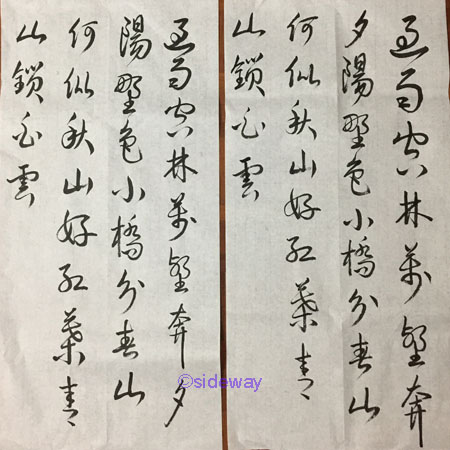 過雨空林萬壑奔
夕陽野色小橋分春山
何似秋山好紅葉青
山鎖白雲
過雨空林萬壑奔夕
陽野色小橋分春山
何似秋山好紅葉青
山鎖白雲
©sideway